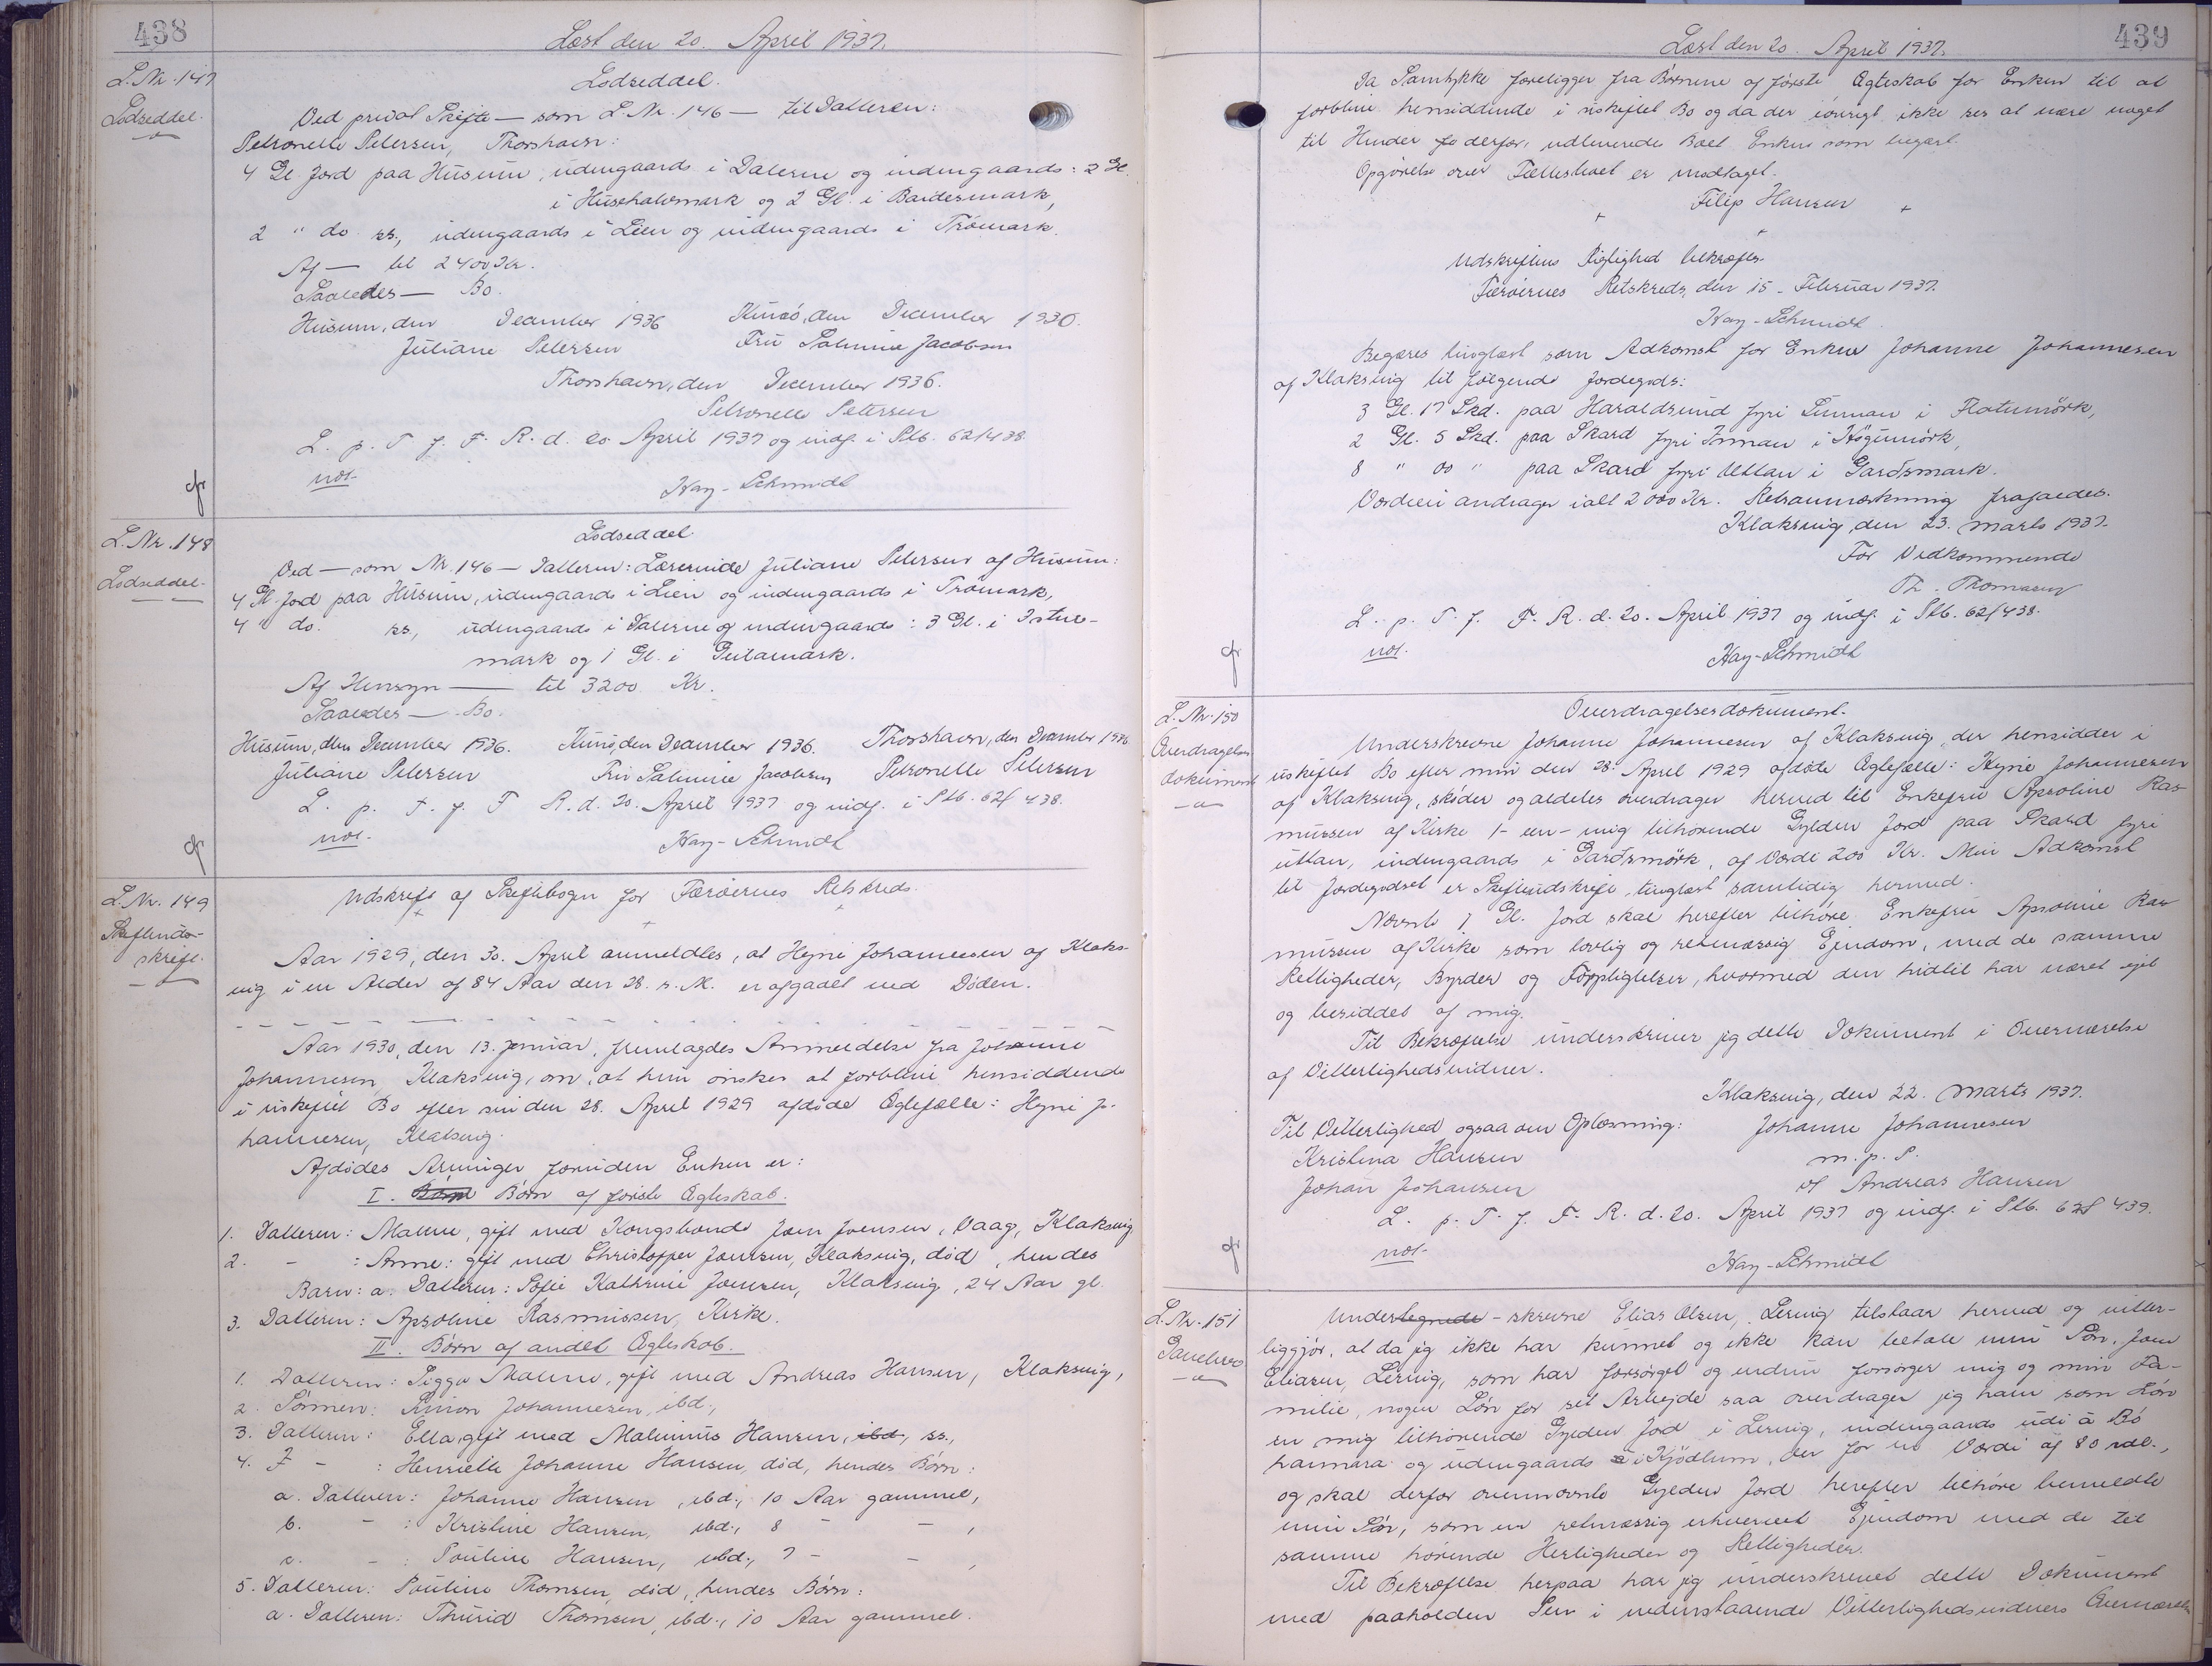 438
Læst den 20. April 1937.
L.Nr. 147
Lodseddel.
Lodseddel.
Ved privat Skifte — som L.Nr. 146 — til Datteren:
Petronelle Petersen, Thorshavn:
4 Gl. Jord paa Husum, udengaards i Dalerne og indengaards: 2 Gl.
i Húsehalvmark og 2 Gl. i Bardesmark,
2 " do ss., udengaards i Lien og indengaards i Trömark.
Af — til 2400 Kr.
Saaledes — Bo.
Husum, den December 1936 Kunö, den December 1930.
Juliane Petersen Fru Salmine Jacobsen
Thorshavn, den December 1936.
Petronelle Petersen
L. p. T. f. F. R. d. 20. April 1937 og indf. i Ptb. 62/438.
not.
Hay-Schmidt
L.Nr. 148
Lodseddel.
Lodseddel
Ved — som Nr. 146 — Datteren: Lærerinde Juliane Petersen af Husum:
4 Gl. Jord paa Husum, udengaards i Lien og indengaards i Trömark,
4 " do. ss., udengaards i Dalerne og indengaards: 3 Gl. i Istue-
mark og 1 Gl. i Geilamark.
Af Hensyn — til 3200 Kr.
Saaledes — Bo.
Husum, den December 1936. Kunö, den December 1936. Thorshavn, den December 1936
Juliane Petersen Fru Salmine Jacobsen Petronelle Petersen
L. p. T. f. F. R. d. 20. April 1937 og indf. i Ptb. 62/438.
not.
Hay-Schmidt
L.Nr. 149
Skifteud-
skrift.
Udskrift af Skiftebogen for Færøernes Retskreds.
Aar 1929, den 30. April anmeldtes, at Heyni Johannesen af Klaks-
vig i en Alder af 84 Aar den 28. s. M. er afgaaet ved Døden.
Aar 1930, den 13. Januar, fremlagdes Anmeldelse fra Johanne
Johannesen, Klaksvig, om, at hun ønsker at forblive hensiddende
i uskiftet Bo efter sin den 28. April 1929 afdøde Ægtefælle: Heyni Jo-
hannesen, Klaksvig.
Afdødes Arvinger foruden Enken er:
I. Børn Børn af første Ægteskab.
1. Datteren: Malene, gift med Kongsbonde Joen Joensen, Vaag, Klaksvig
2. - : Anne: gift med Christoffer Joensen, Klaksvig, død, hendes
Barn: a. Datteren: Sofie Kathrine Joensen, Klaksvig, 24 Aar gl.
3. Datteren: Apsoline Rasmussen, Kirke.
II. Børn af andet Ægteskab.
1. Datteren: Sigga Malene, gift med Andreas Hansen, Klaksvig,
2. Sønnen: Simon Johannesen, ibd.,
3. Datteren: Ella, gift med Malinius Hansen, ibd, ss.,
4. - : Henriette Johanne Hansen, død, hendes Børn:
a. Datteren: Johanne Hansen, ibd., 10 Aar gammel,
b. - : Kristine Hansen, ibd., 8 - - ,
c. - : Pouline Hansen, ibd., 7 - - ,
5. Datteren: Pouline Thomsen, død, hendes Børn:
a. Datteren: Thurid Thomsen, ibd., 10 Aar gammel.
439
Læst den 20. April 1937.
Da Samtykke foreligger fra Børnene af første Ægteskab for Enken til at
forblive hensiddende i uskiftet Bo og da der iøvrigt ikke ses at være noget
til Hinder derfor, udleverede Boet Enken som begært.
Opgørelse over Fællesboet er modtaget.
Filip Hansen
Udskriftens Rigtighed bekræftes.
Færøernes Retskreds, den 15. Februar 1937.
Hay-Schmidt
Begæres tinglæst som Adkomst for Enken Johanne Johannesen
af Klaksvig til følgende Jordegods:
3 Gl. 17 Skd. paa Haraldsund fyri Sunnan i Flatumörk,
2 Gl. 5 Skd. paa Skard fyri Innan i Högumörk,
8 " 00 " paa Skard fyri Uttan i Gardsmark.
Værdien andrager ialt 2000 Kr. Retsanmærkning frafaldes.
Klaksvig, den 23. Marts 1937.
For Vedkommende
Th. Thomasen
L. p. T. f. F. R. d. 20. April 1937 og indf. i Ptb. 62/438.
not.
Hay-Schmidt
L.Nr. 150
Overdragelses
dokument
Overdragelsesdokument.
Underskrevne Johanne Johannesen af Klaksvig, der hensidder i
uskiftet Bo efter min den 28. April 1929 afdøde Ægtefælle: Heyni Johannesen
af Klaksvig, skøder og aldeles overdrager herved til Enkefru Apsoline Ras-
mussen af Kirke 1 - een - mig tilhørende Gylden Jord paa Skard fyri
uttan, indengaards i Gardsmörk, af Værdi 200 Kr. Min Adkomst
til Jordegodset er Skifteudskrift, tinglæst samtidig hermed.
Nævnte 1 Gl. Jord skal herefter tilhøre Enkefru Apsoline Ras-
mussen af Kirke som lovlig og retmæssig Ejendom, med de samme
Rettigheder, Byrder og Forpligtelser, hvormed den hidtil har været ejet
og besiddet af mig.
Til Bekræftelse underskriver jeg dette Dokument i Overværelse
af Vitterlighedsvidner.
Klaksvig, den 22. Marts 1937.
Til Vitterlighed ogsaa om Oplæsning: Johanne Johannesen
Kristina Hansen m. p. P.
Johan Johansen af Andreas Hansen
L. p. T. f. F. R. d. 20. April 1937 og indf. i Ptb. 62/439.
not.
Hay-Schmidt
L.Nr. 151
Gavebrev
Undertegnede - skrevne Elias Olsen, Lervig tilstaar herved og vitter-
liggjör, at da jeg ikke har kunnet og ikke kan betale min Søn, Joen
Eliasen, Lervig, som har forsørget og endnu forsörger mig og min Fa-
milie, nogen Løn for sit Arbejde saa overdrager jeg ham som Løn
en mig tilhörende Gylden Jord i Lervig, indengaards udi á Bö
hammara og udengaards i Kjödlum, der for en Værdi af 80 rdl.,
og skal derfor ovennævnte Gylden Jord herefter tilhöre bemeldte
min Søn, som en retmæssig erhvervet Ejendom med de til
samme hörende Herligheder og Rettigheder.
Til Bekræftelse herpaa har jeg underskrevet dette Dokument
med paaholden Pen i nedenstaaende Vitterlighedsvidners Overværelse